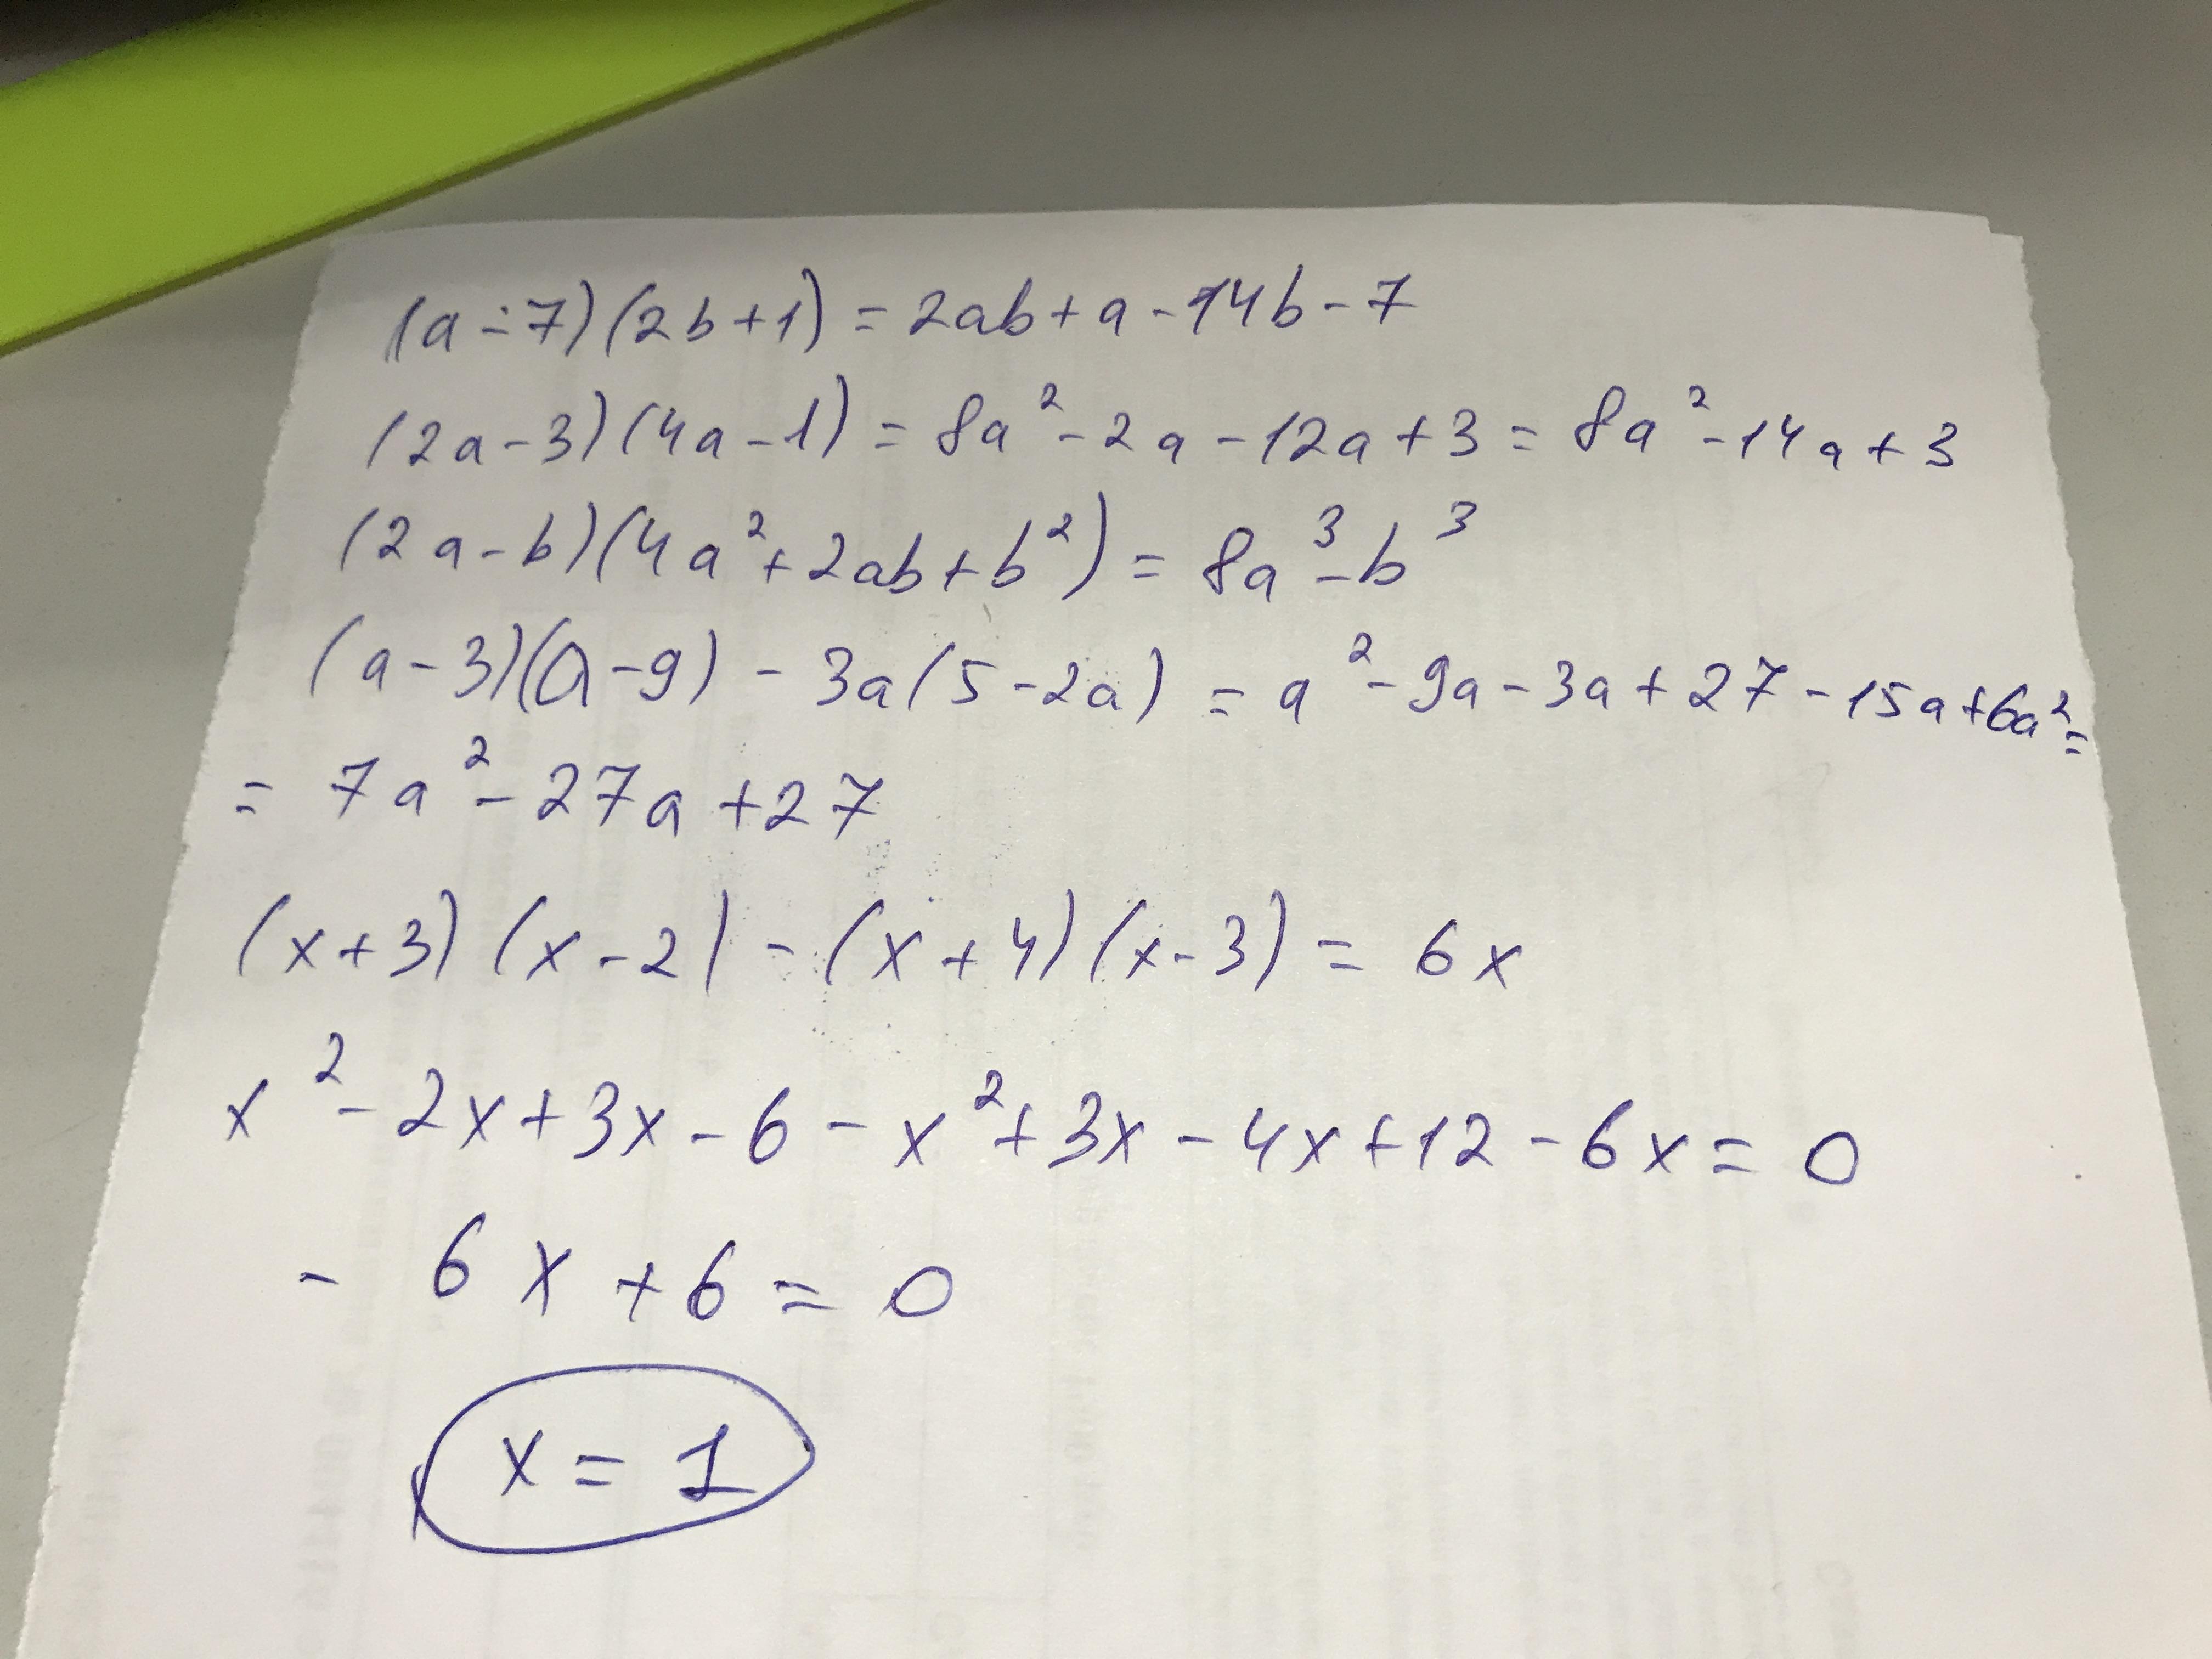 (a-7)(2b+1) = 2ab+a-14b-7
(2a-3)(4a-1) = 8a²-2a-12a+3 = 8a²-14a+3
(2a-b)(4a²+2ab+b²) = 8a³-b³
(a-3)(a-9) - 3a(5-2a) = a²-9a-3a+27-15a+6a²=
= 7a²-27a+27
(x+3)(x-2)-(x+4)(x-3) = 6x
x²-2x+3x-6-x²+3x-4x+12-6x=0
- 6x+6=0
x=1